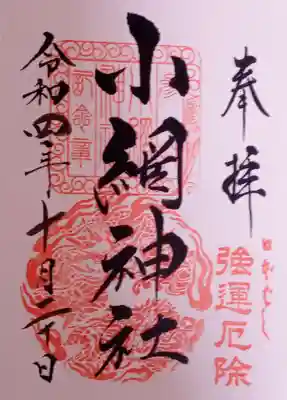 奉拝
強運厄除
小網神社
令和四年十月二十日